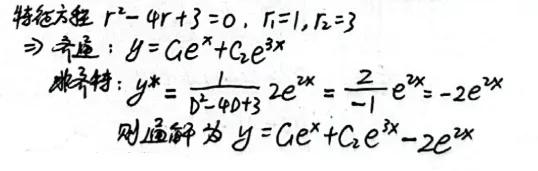 特征方程 r²-4r+3=0, r₁=1, r₂=3
⇒ 齐通: y=C₁eˣ+C₂e³ˣ
非齐特: y*= \frac{1}{D²-4D+3} 2e²ˣ = \frac{2}{-1} e²ˣ = -2e²ˣ
则通解为 y=C₁eˣ+C₂e³ˣ-2e²ˣ